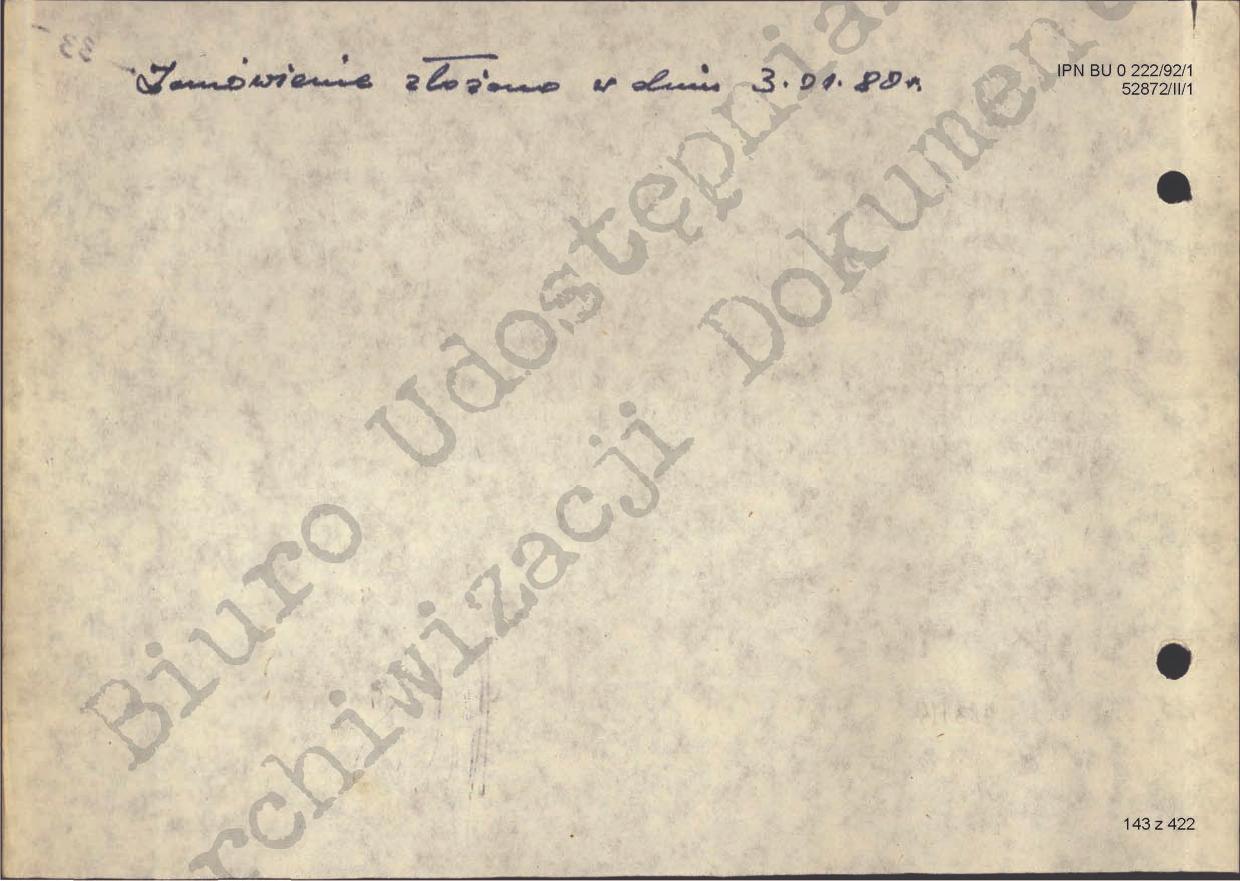 Zamówienie złożono w dniu 3.01.80r.
IPN BU 0 222/92/1
52872/II/1
Biuro Udostępnia
rchiwizacji Dokumen
143 z 422